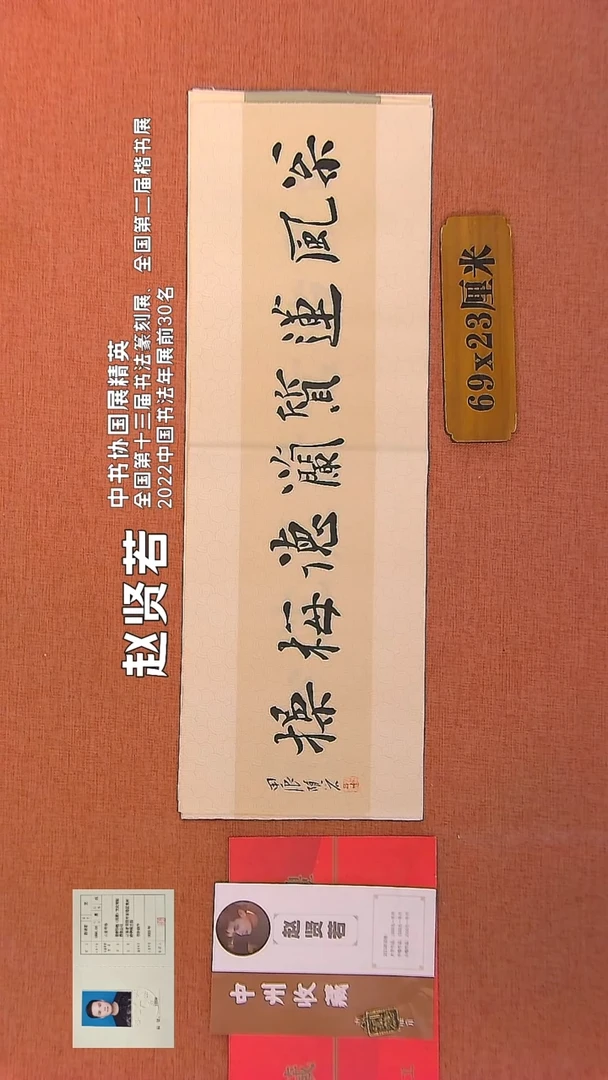 赵贤若
中书协国展精英
全国第十三届书法篆刻展、全国第二届楷书展
2022中国书法年展前30名
松風蓮質蘭德梅操
69x23厘米
赵贤若
中州收藏